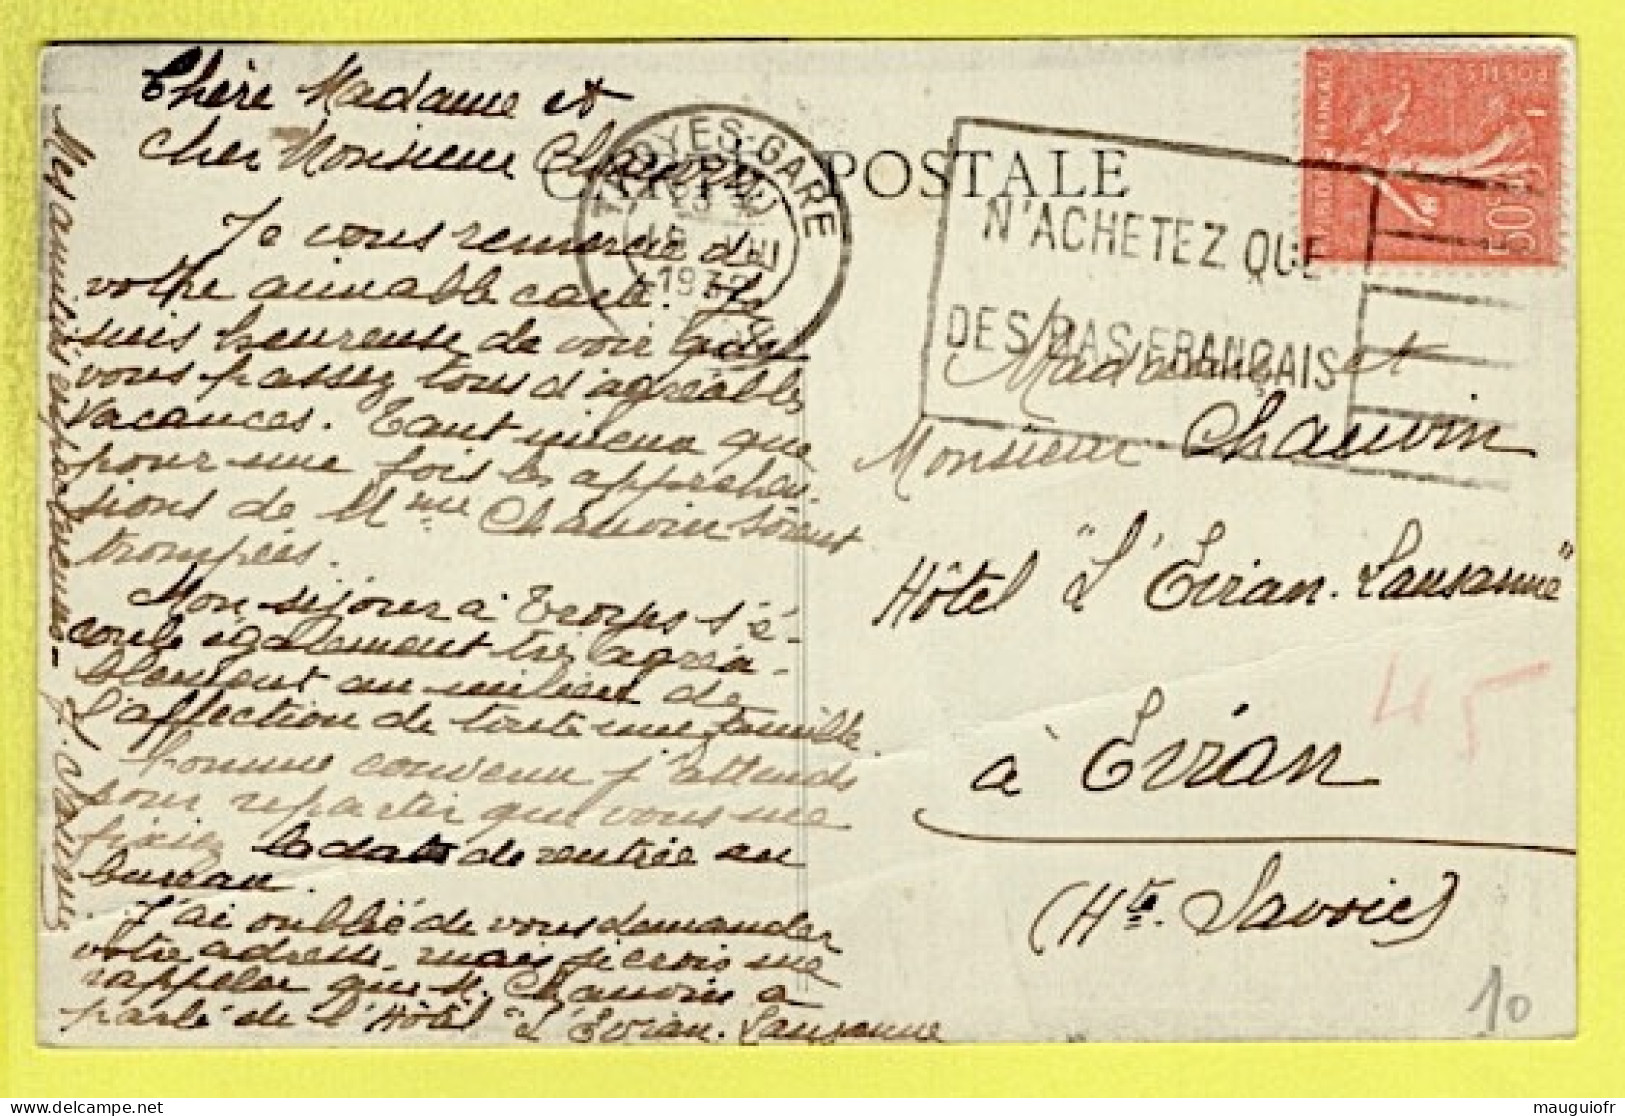 Chère Madame et
Cher Monsieur Chauvin
Je vous remercie de
votre aimable carte. Je
suis heureuse de voir que
vous passez tous d'agréables
vacances. Tant mieux que
pour une fois les appréhen-
sions de Mme Chauvin soient
trompées.
Mon séjour à Troyes s'é-
coule également très agréa-
blement au milieu de
l'affection de toute une famille.
Comme convenu j'attends
pour repartir que vous me
fixiez la date de rentrée au
bureau.
J'ai oublié de vous demander
votre adresse, mais je crois me
rappeler que M. Chauvin a
parlé de l'Hôtel "L'Evian-Lausanne
Mes amitiés
CARTE POSTALE
TROYES-GARE
1932
N'ACHETEZ QUE
DES BAS FRANÇAIS
POSTES
FRANÇAISE
50
Madame et
Monsieur Chauvin
Hôtel "L'Evian-Lausanne"
à Evian
(Hte Savoie)
45
10
mauguiofr